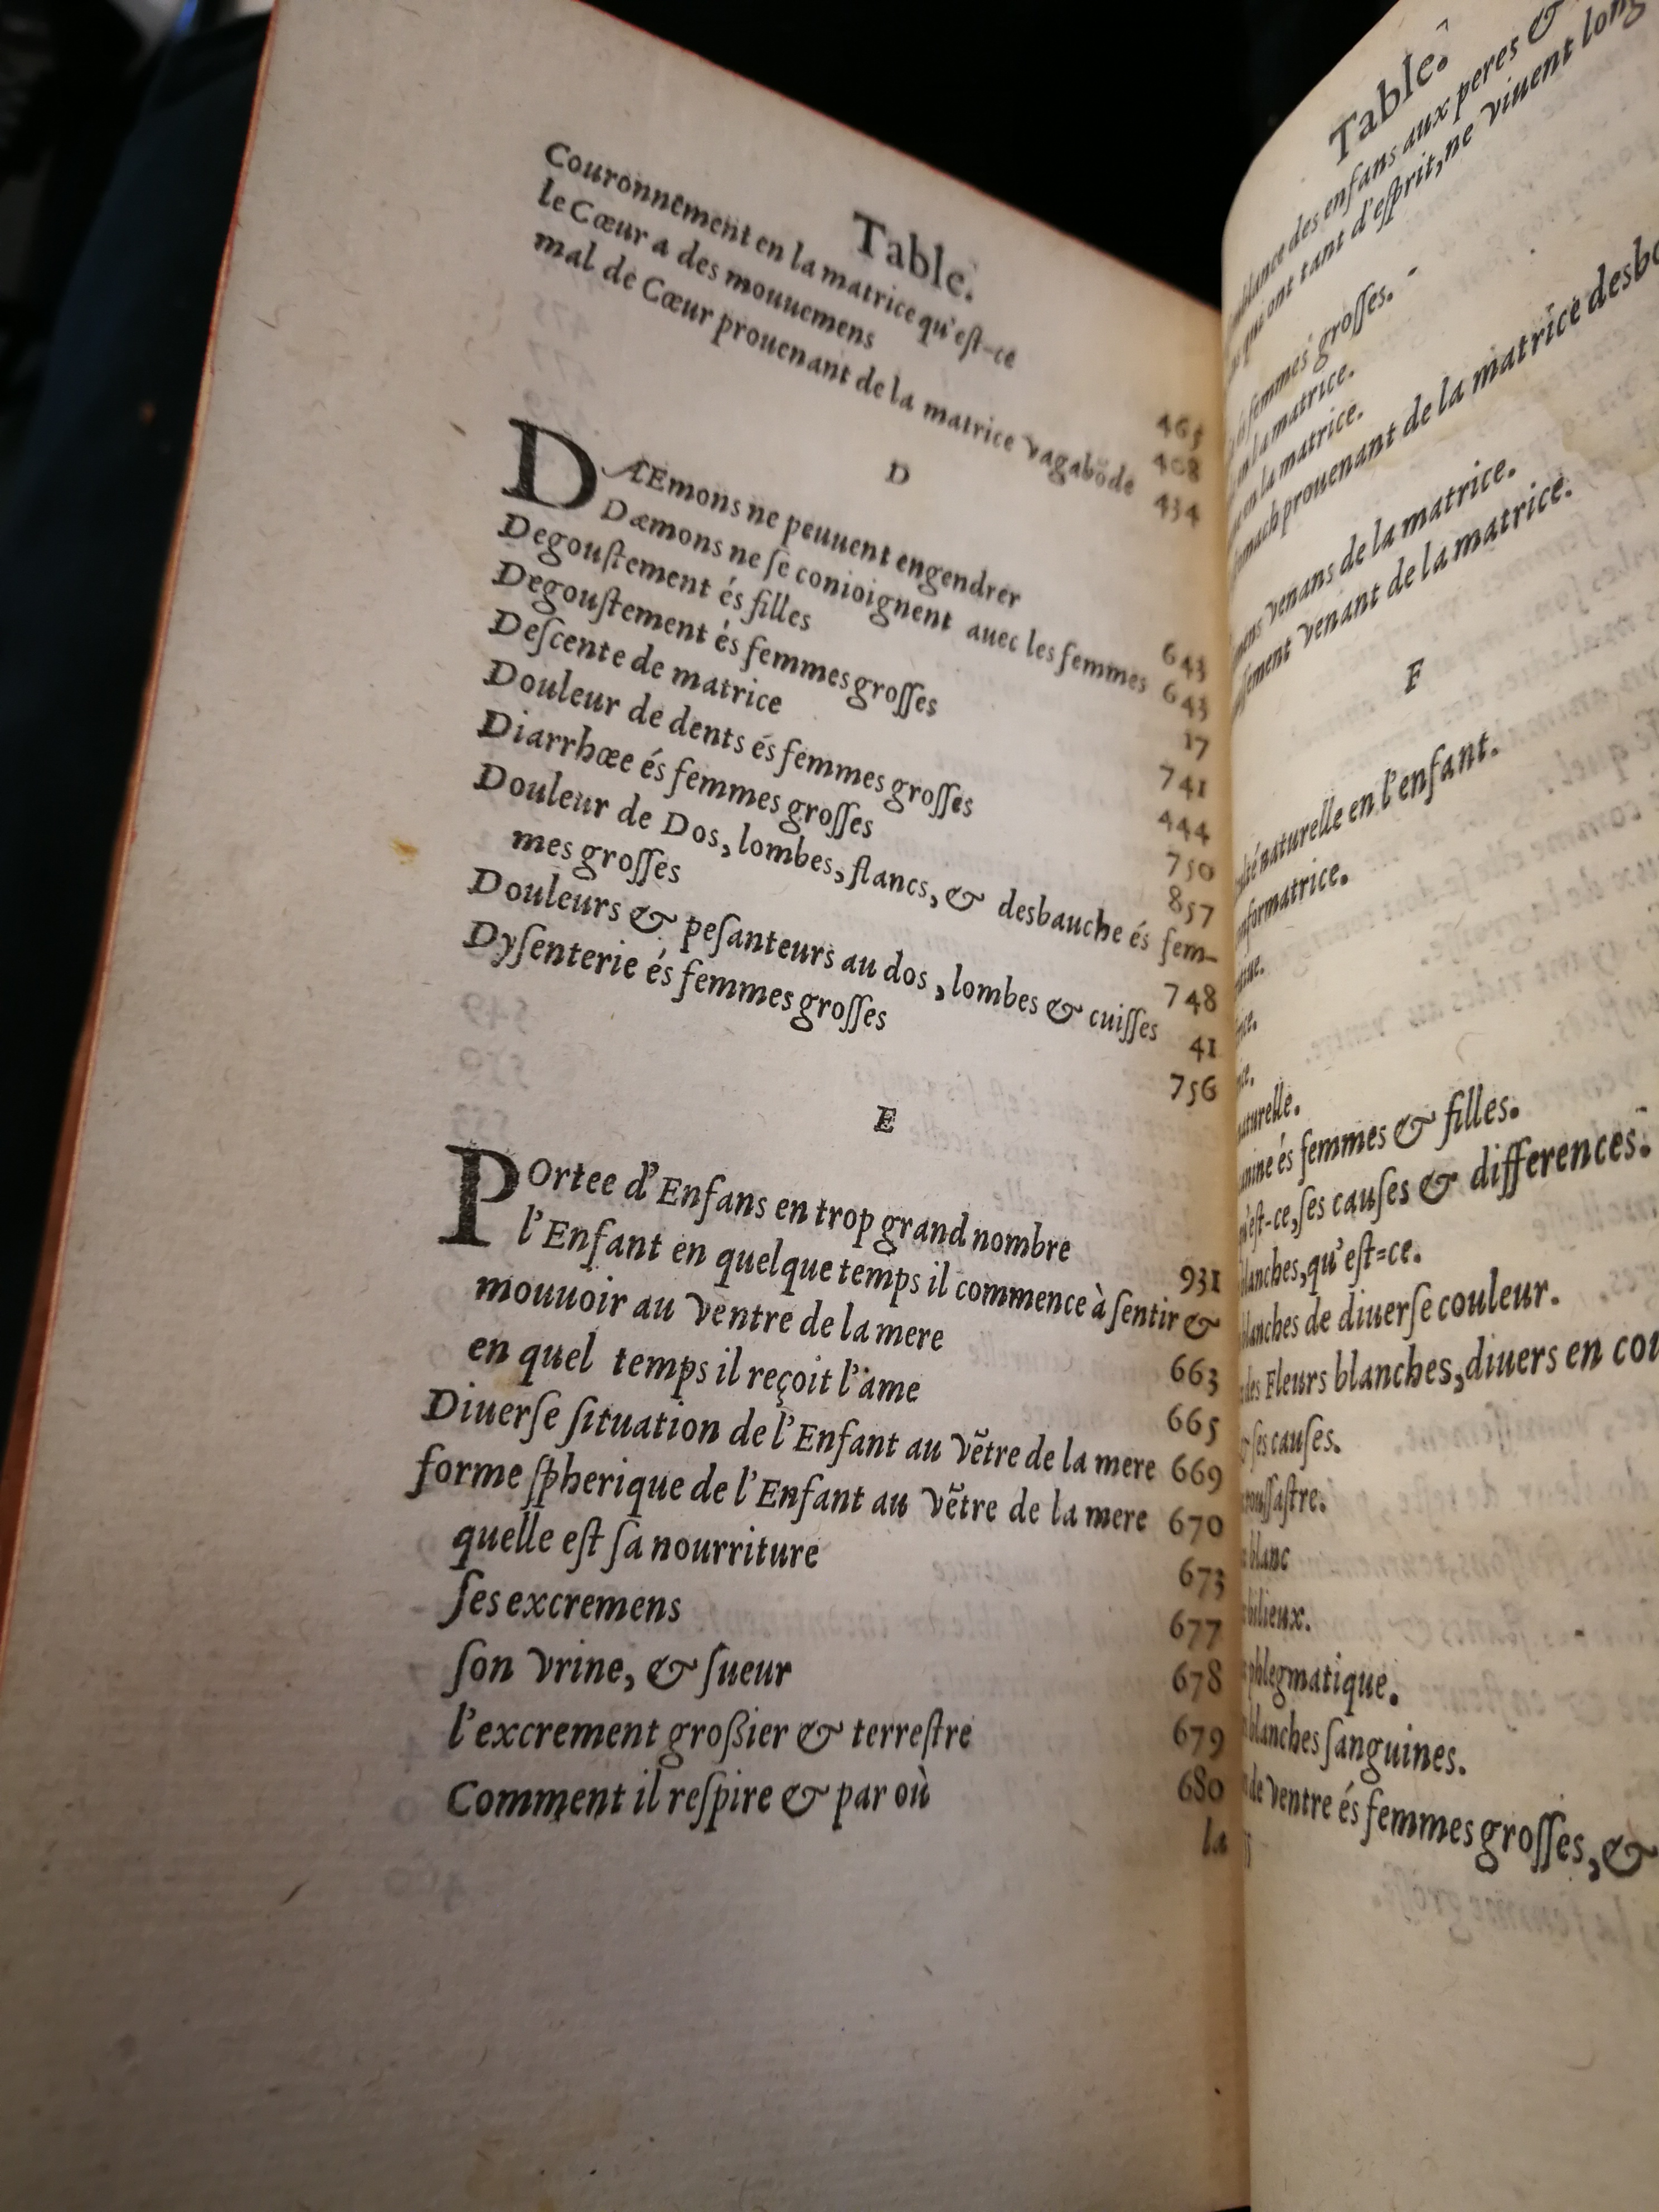 Table.
Couronnement en la matrice qu'eſt-ce 465
le Cœur a des mouuemens 408
mal de Cœur prouenant de la matrice vagabõde 434
D
DÆmons ne peuuent engendrer 643
Dæmons ne ſe conioignent auec les femmes 643
Degouſtement és filles 17
Degouſtement és femmes groſſes 741
Deſcente de matrice 444
Douleur de dents és femmes groſſes 750
Diarrhœe és femmes groſſes 857
Douleur de Dos, lombes, flancs, & desbauche és fem-
mes groſſes 748
Douleurs & peſanteurs au dos, lombes & cuiſſes 41
Dyſenterie és femmes groſſes 756
E
POrtee d'Enfans en trop grand nombre 931
l'Enfant en quelque temps il commence à ſentir &
mouuoir au ventre de la mere 663
en quel temps il reçoit l'ame 665
Diuerſe ſituation de l'Enfant au vẽtre de la mere 669
forme ſpherique de l'Enfant au vẽtre de la mere 670
quelle eſt ſa nourriture 673
ſes excremens 677
ſon vrine, & ſueur 678
l'excrement groſſier & terreſtre 679
Comment il reſpire & par où 680
la
Table.
des enfans aux peres &
qui ont tant d'eſprit, ne viuent long
femmes groſſes.
en la matrice.
en la matrice.
prouenant de la matrice desb
venans de la matrice.
venant de la matrice.
F
naturelle en l'enfant.
formatrice.
és femmes & filles.
ſes cauſes & differences.
qu'eſt=ce.
de diuerſe couleur.
des Fleurs blanches, diuers en cou
ſes cauſes.
blanc
bilieux.
phlegmatique.
blanches ſanguines.
de ventre és femmes groſſes, &